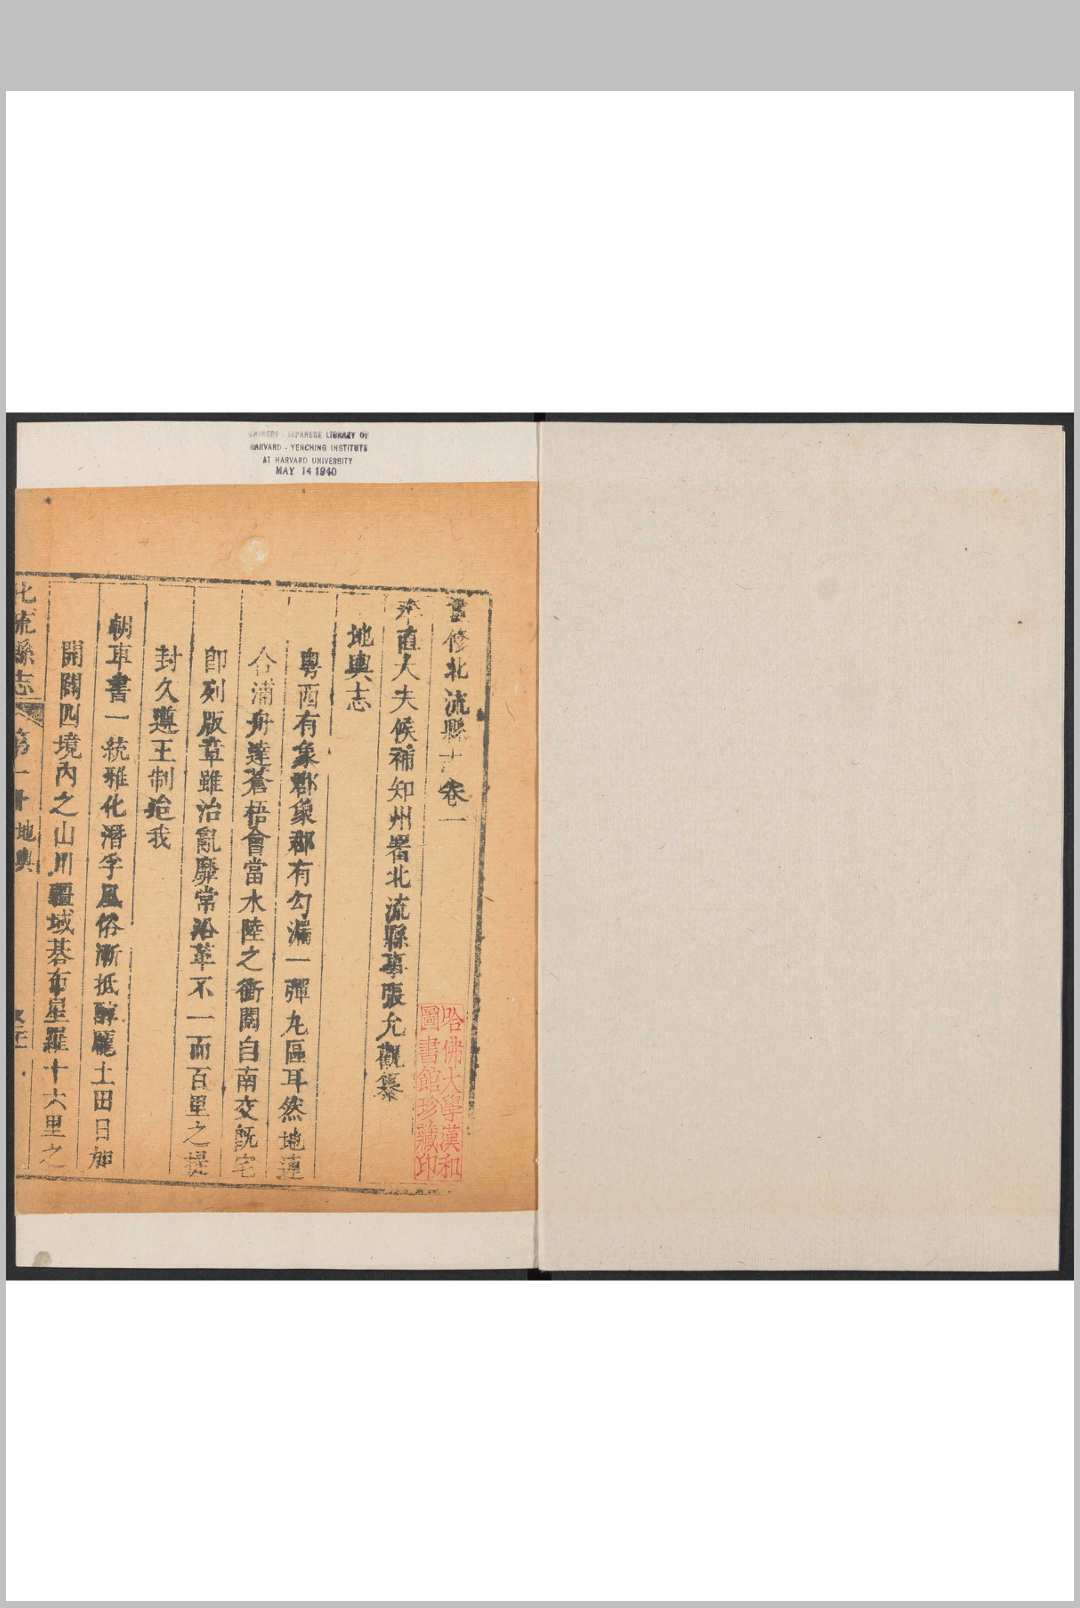 CHINESE - JAPANESE LIBRARY OF
HARVARD - YENCHING INSTITUTE
AT HARVARD UNIVERSITY
MAY 14 1940
重修北流縣志卷一
奉直大夫候補知州署北流縣事張允觀纂
地輿志
粵西有象郡象郡有勾漏一彈丸區耳然地連
合浦舟達蒼梧會當水陸之衝關自南交既宅
卽列版章雖治亂靡常沿革不一而百里之提
封久遵王制迨我
朝車書一統雅化潛孚風俗漸抵醇龐土田日加
開闢四境內之山川疆域碁布星羅十六里之
北流縣志
第一冊
地輿
哈佛大學漢和
圖書館珍藏印